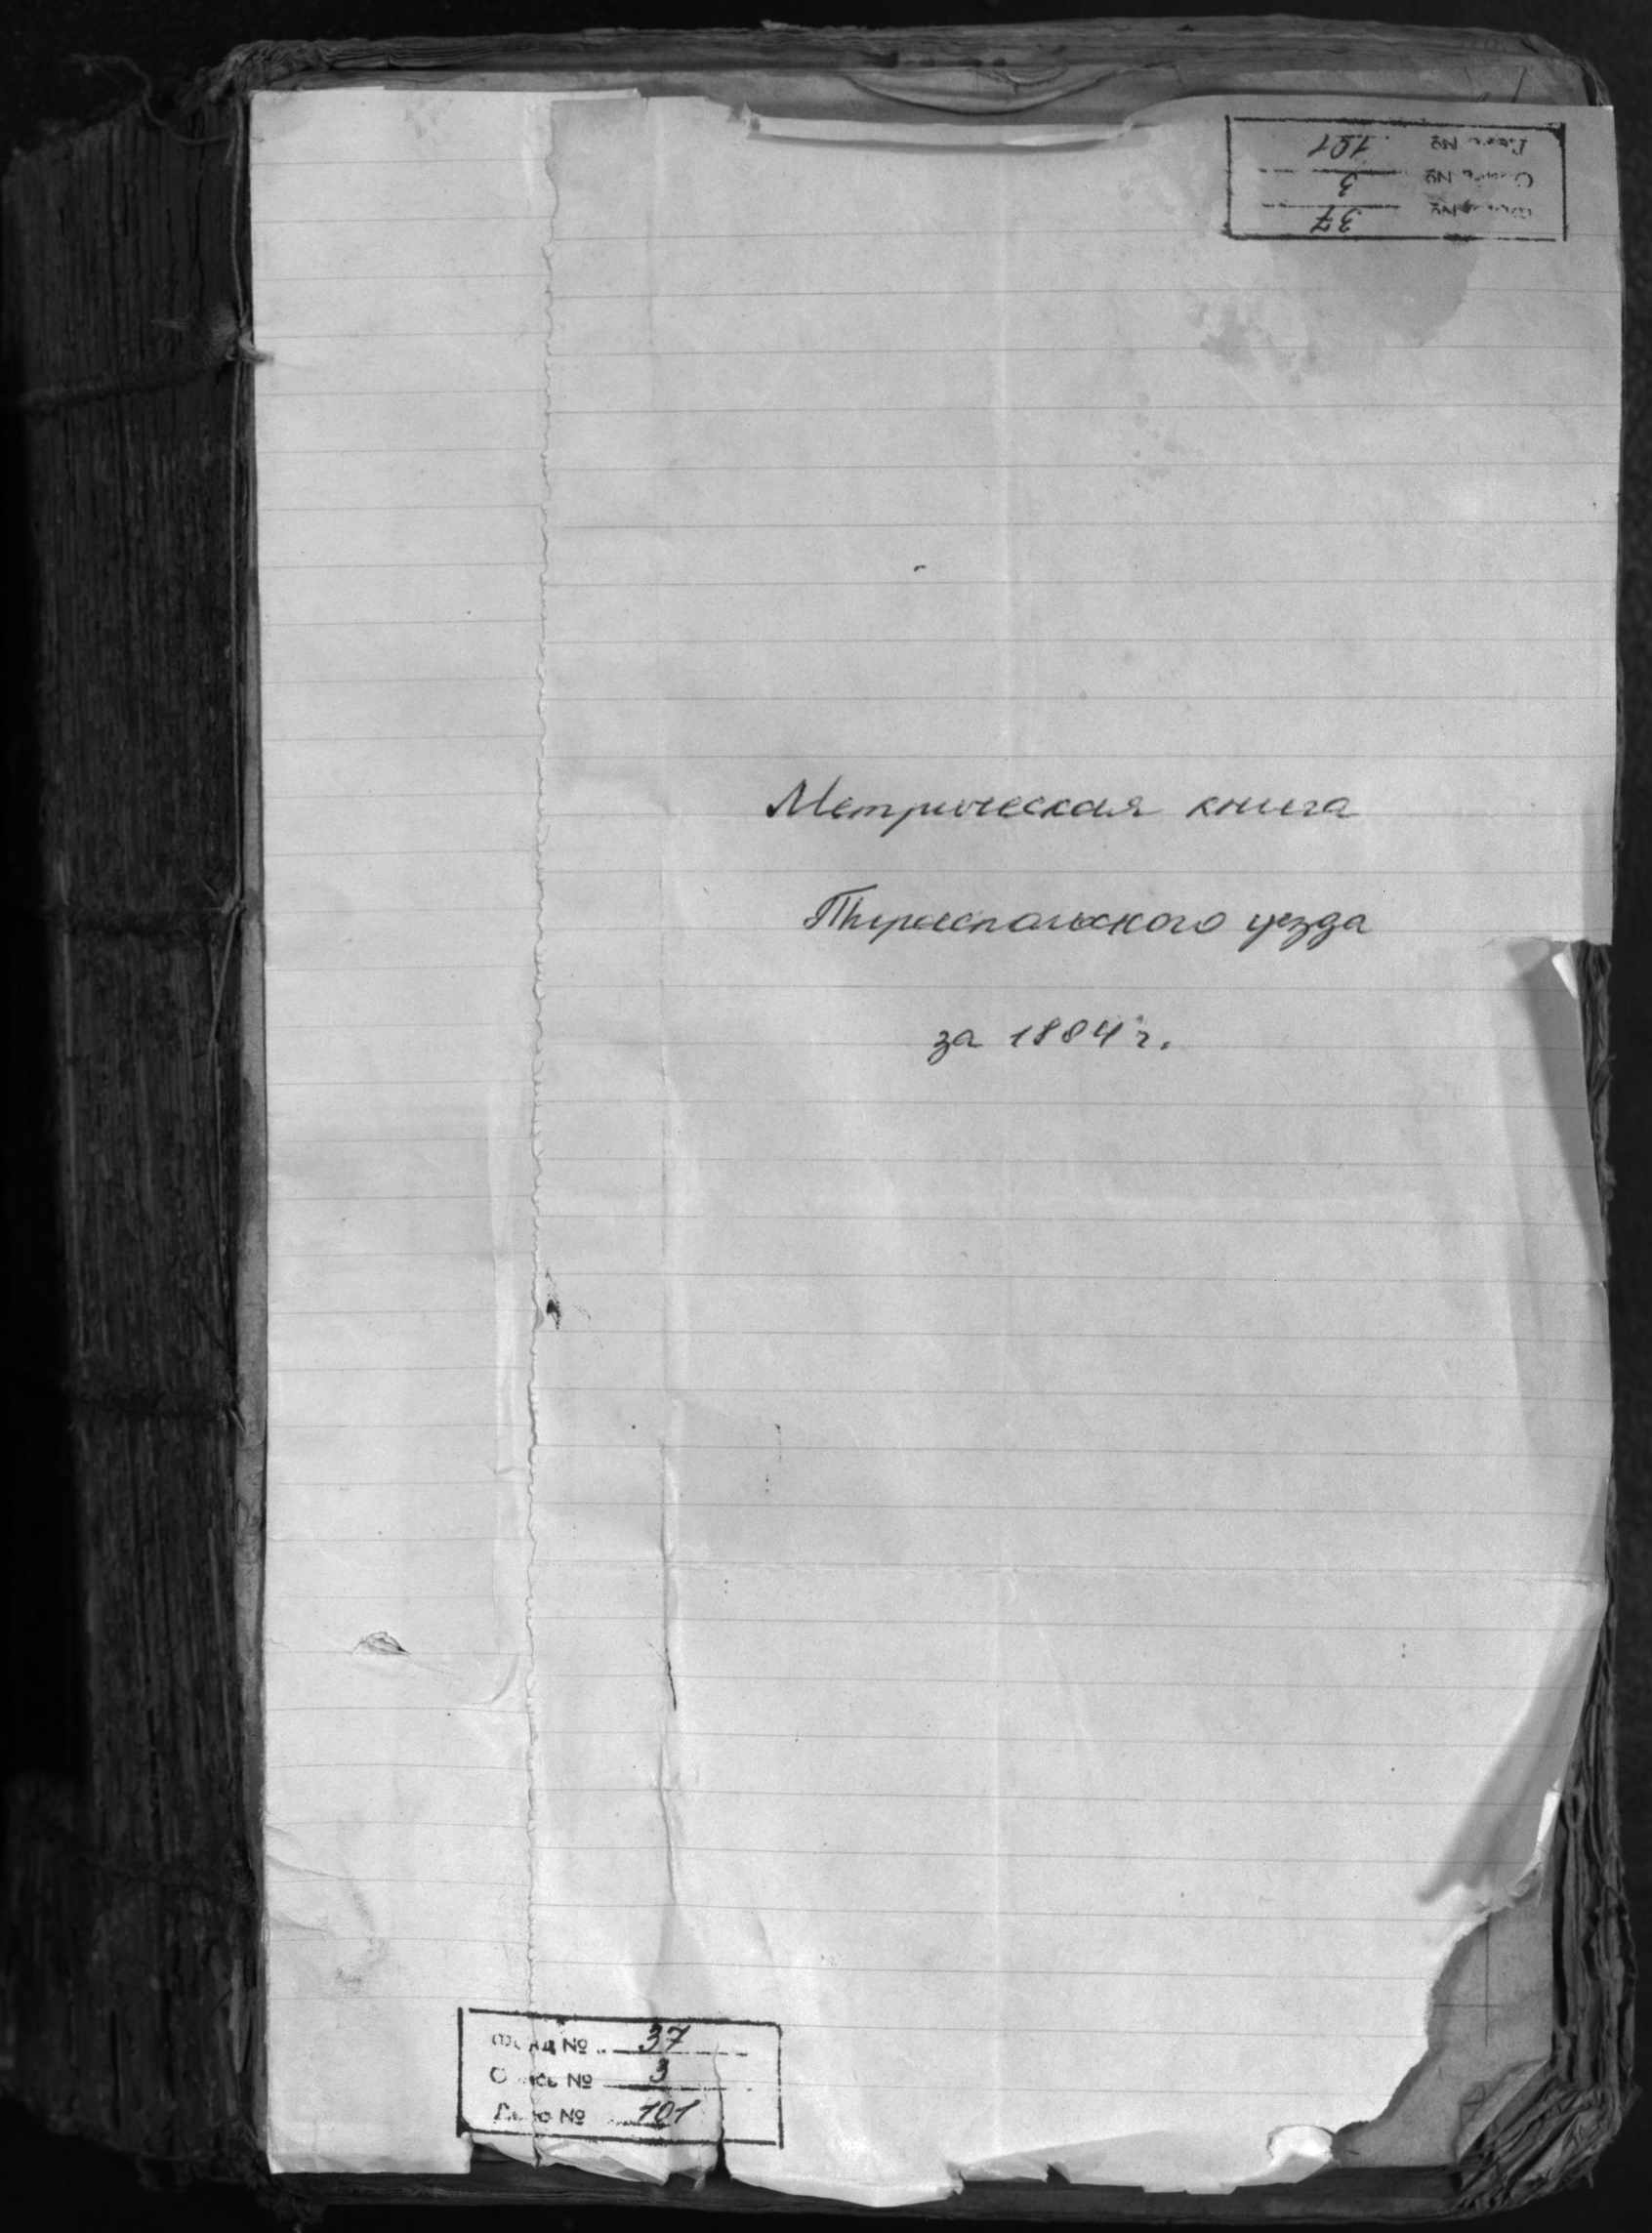 Дело № 101
Опись № 3
Фонд № 37
Метрическая книга
Тираспольского уезда
за 1884 г.
Фонд № 37
Опись № 3
Дело № 101